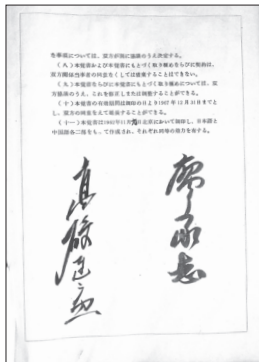 を華磋については、双方が別に協議のうえ決定する。
（八）本覚書および本覚書にもとづく取り極めならびに契約は、
双方関係当事者の同意なくしては廃棄することはできない。
（九）本覚書ならびに本覚書にもとづく取り極めは、双方
協議のうえ、これを修正しまたは調整することができる。
（十）本覚書の有効期間は調印の日より1967年12月31日までと
し、双方の同意をえて延長することができる。
（十一）本覚書は1962年11月9日北京において調印し、日本語と
中国語各二部をもって作成され、それぞれ同等の効力を有する。
廖承志
高碕達之助